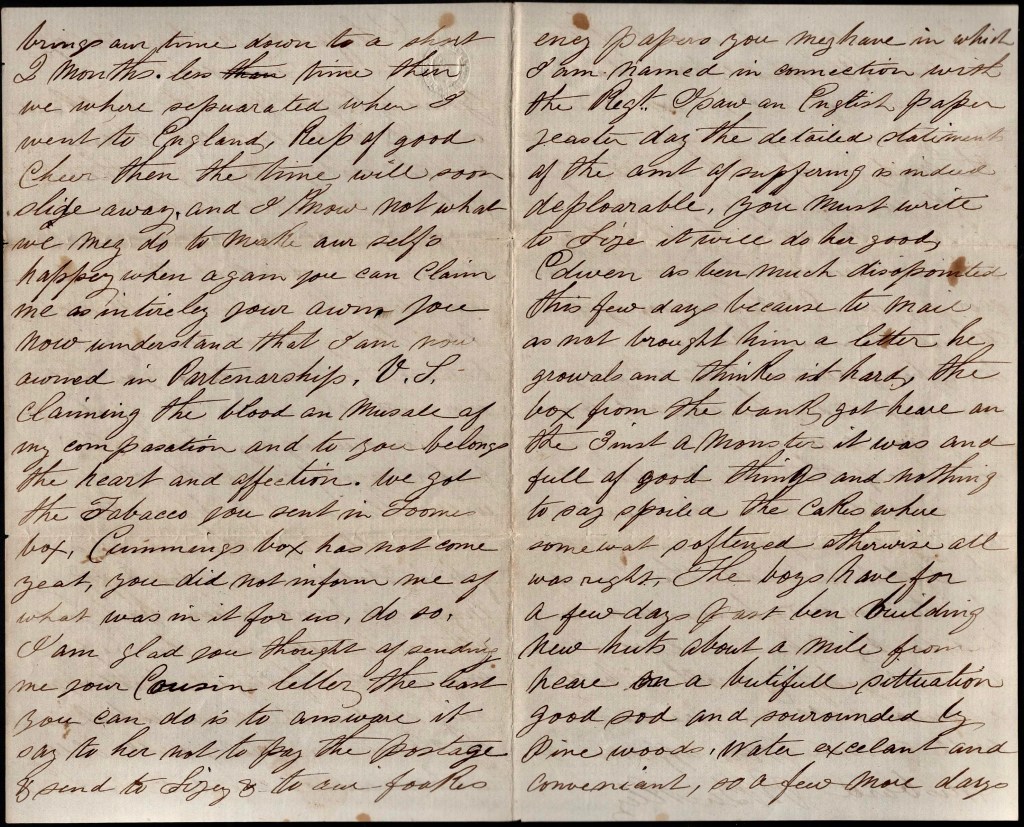 brings aur time down to a short
2 months. less than time then
we where sepuarated when I
went to England, Keep of good
Cheer then the time will soon
slide away, and I Know not what
we mey do to make aur selfs
happey when again you can Claim
me as intireley your awn, you
now understand that I am now
awned in Partenarship. U. S.
claiming the blood an musale of
my compasation and to you belongs
the heart and affection. We got
the Tabacco you sent in Tooms
box, Cummings box has not come
yeat, you did not inform me of
what was in it for us, do so.
I am glad you thought of sending
me your Cousin letter, the least
you can do is to answare it
say to her not to pay the postage
& send to Lizey & to aur foakes
eney papers you mey have in which
I am named in connection with
the Regt. I saw an English paper
yeaster day the detailed statiments
of the amt of suffering is indeed
deploarable, you must write
to Lize it will do her good,
Edwen as ben much disopointed
this few days because to mail
as not brought him a letter he
growals and thinkes it hard, the
box from the bank, got heare an
the 3 inst a monster it was and
full of good things and nothing
to say spoiled the cakes where
somewat softened otherwise all
was right, The boys have for
a few days past ben building
new huts about a mile from
heare on a butifull sittuation
good sod and sourounded by
Pine woods, water excelant and
conveniant, so a few more days